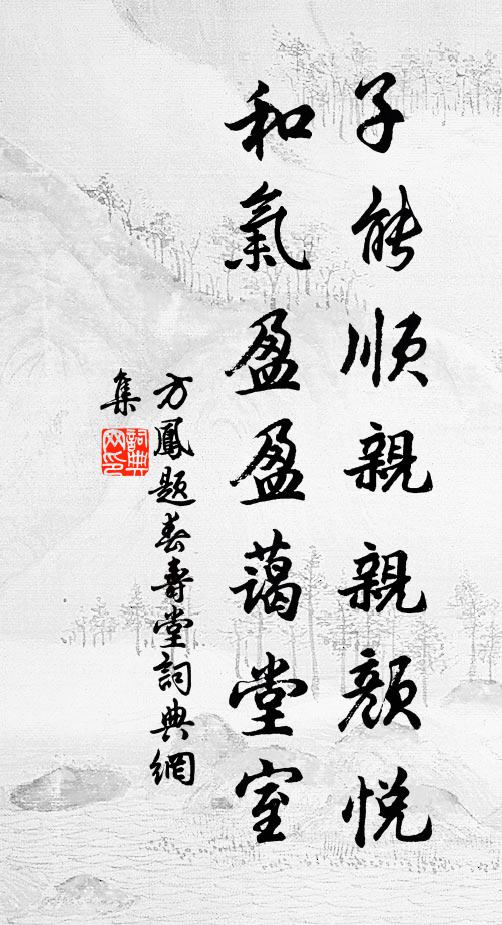 子能顺親親顏悅
和氣盈盈藹堂室
方鳳題春壽堂詞典網
集
詞典網印